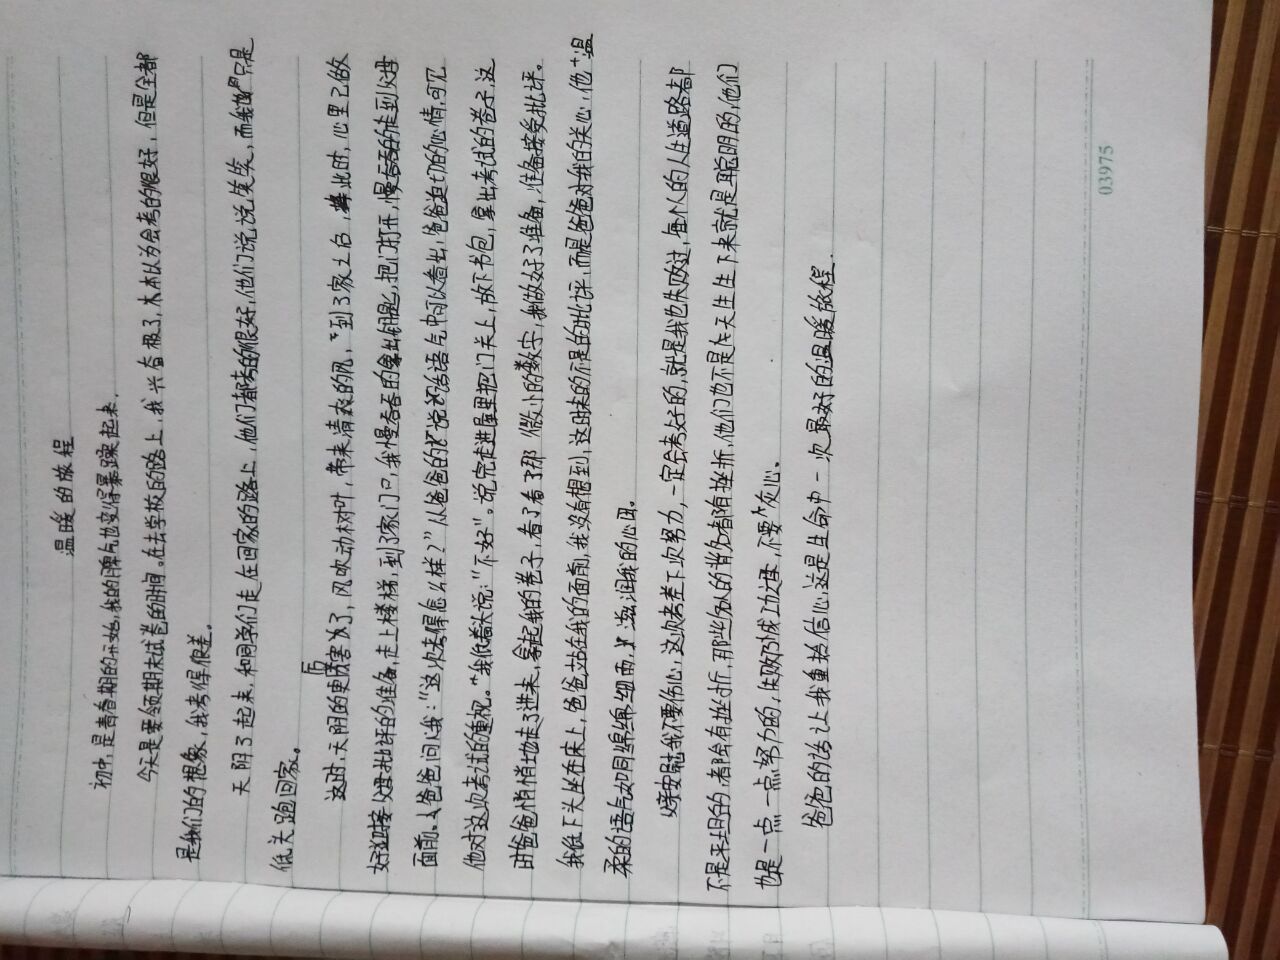 温暖的旅程
初中,是青春期的开始,我的脾气也变得暴躁起来.
今天是要领期末试卷的时间。在去学校的路上,我兴奋极了,本本以为会考的很好,但是全都
是我们的想象,我考得很差。
天阴了起来,和同学们走在回家的路上,他们都考的很好,他们说说笑笑,而我只是
低头跑回家。
这时,天阴的更厉害了,风吹动树叶,带来清衣的风,到了家土台,此时,心里已做
好迎接父母批评的准备,走上楼梯,到了家门口,我慢吞吞的拿出钥匙,把门打开,慢吞吞的走到父母
面前,爸爸问我:"这次考得怎么样?"从爸爸的说话语气中可以看出,爸爸迫切的心情,可见
他对这次考试的重视。"我低着头说:"不好"。说完走进屋里把门关上,放下书包,拿出考试的卷子,这
时爸爸悄悄地走了进来,拿起我的卷子,看了看了那微小的数字,我做好了准备,准备接受批评。
我低下头坐在床上,爸爸站在我的面前,我没有想到,这时来的不是的批评,而是爸爸对我的关心,他十温
柔的语气如同绵绵细雨,滋润我的心田。
安慰我不要伤心,这次考差下次努力,一定会考好的,就是我也失败过,每个人的人生道路都
不是平坦的,都会有挫折,那些名人的背名者都有挫折,他们也不是先天生生下来就是聪明的,他们
也是一点一点努力的,失败乃成功之母,不要灰心。
爸爸的话让我重拾信心,这是生命中一次最好的温暖旅程.
03975